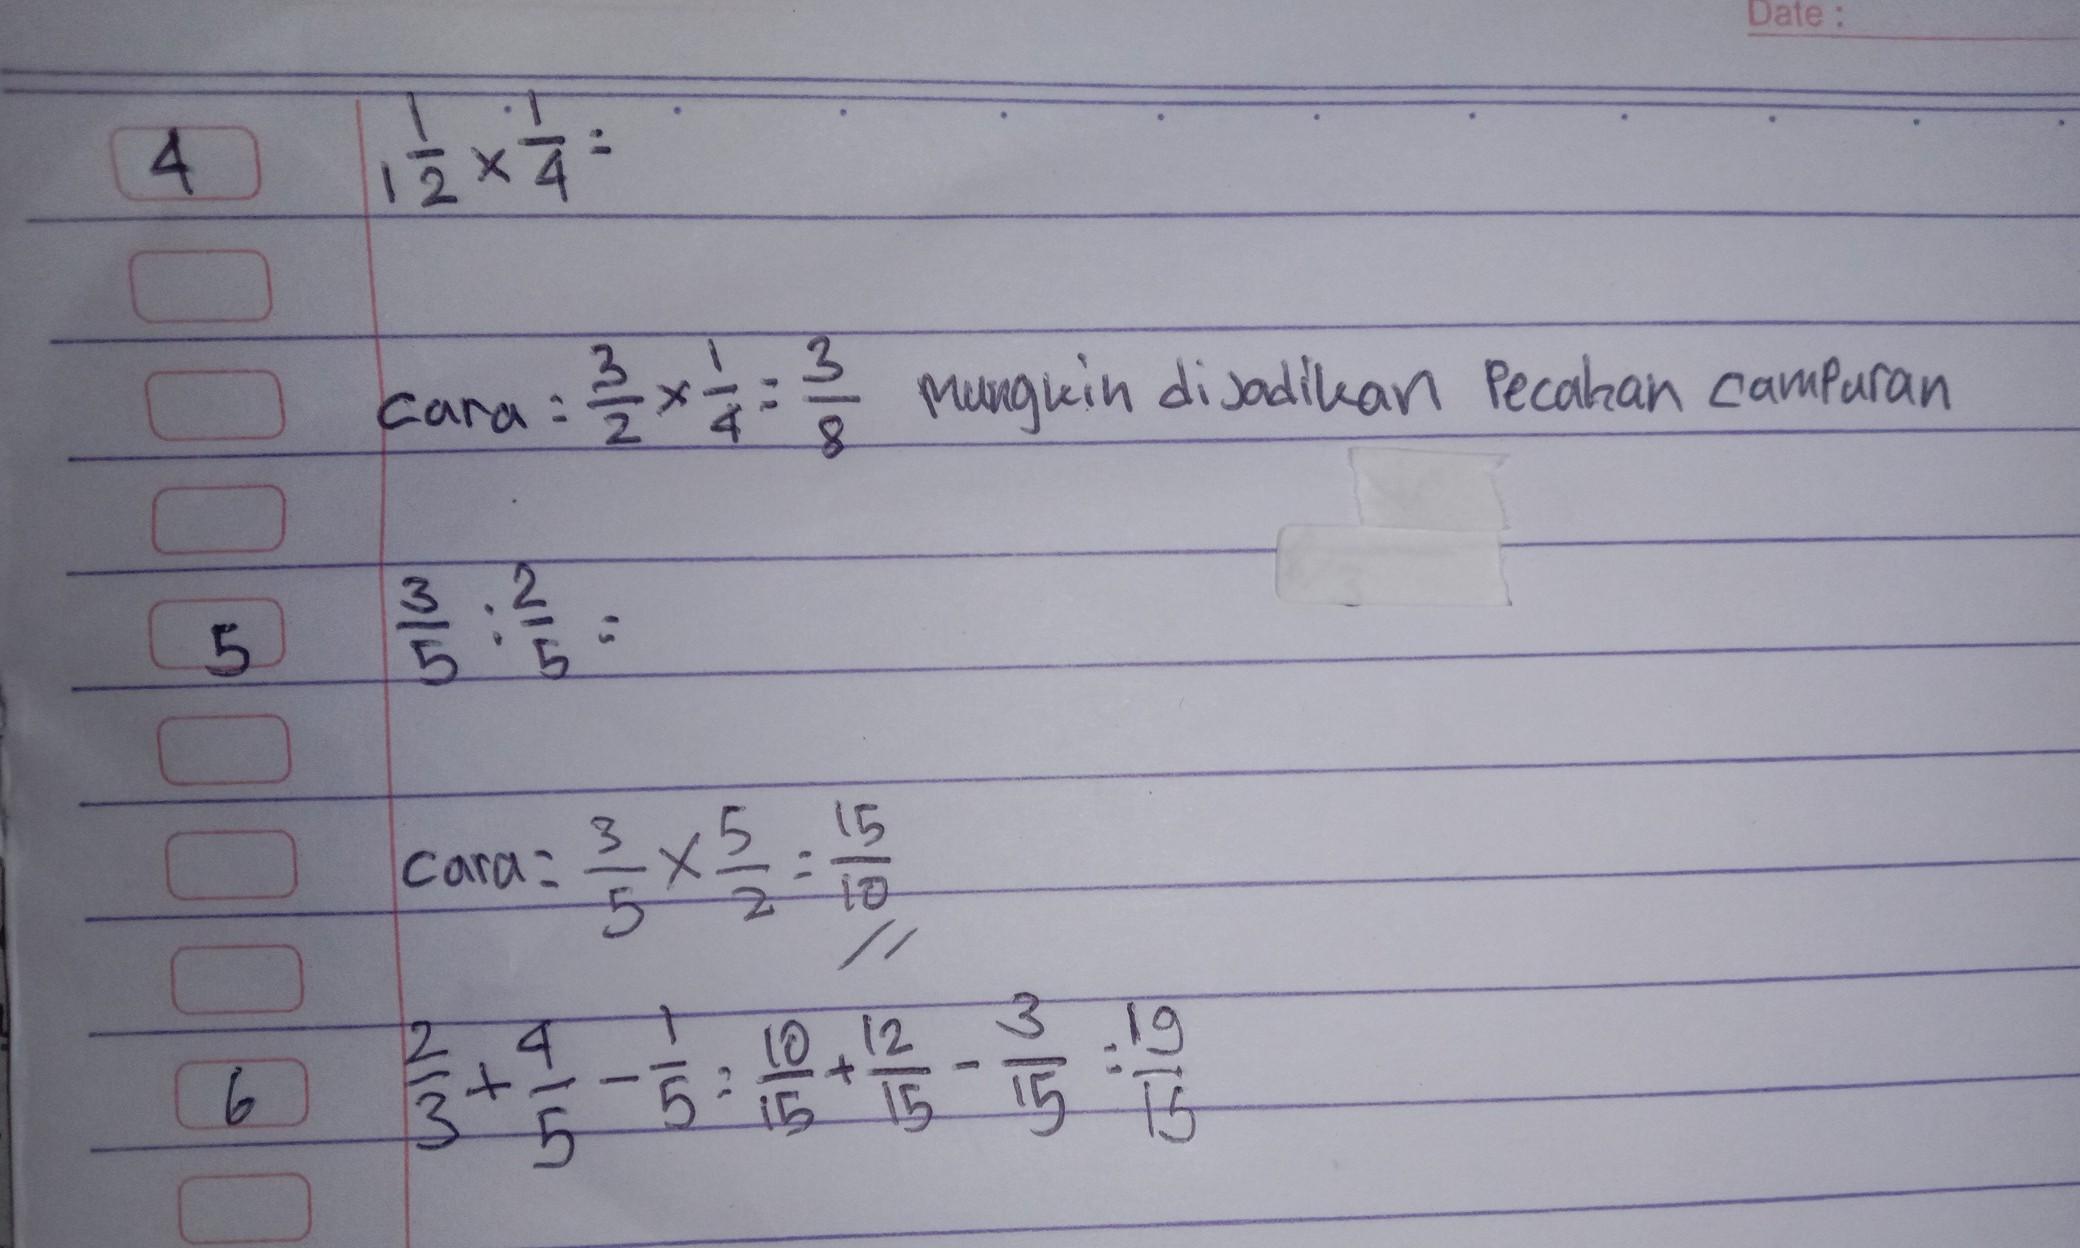 Date :
4 1 1/2 x 1/4 =
cara = 3/2 x 1/4 = 3/8 mungkin disadikan Pecahan camPuran
5 3/5 : 2/5 =
cara = 3/5 x 5/2 = 15/10 //
6 2/3 + 4/5 - 1/5 = 10/15 + 12/15 - 3/15 = 19/15